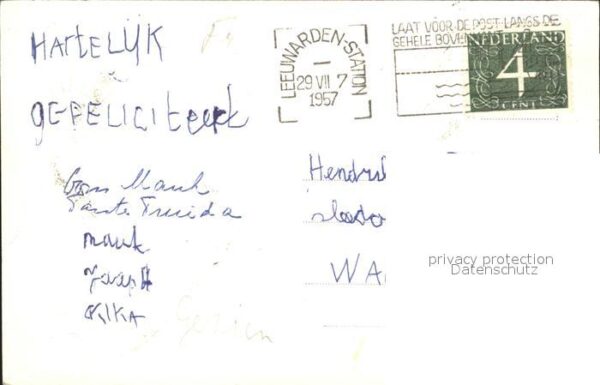 HARTELIJK
GEFELICITEERT
Oom Mauk
Tante Truida
Mauk
Jaap
KIKA
Gerien
LEEUWARDEN-STATION
29 VII 7
1957
LAAT VÓÓR DE POST LANGS DE
GEHELE BOVE
NEDERLAND
4
CENT
Hendri
slado
WA
privacy protection
Datenschutz